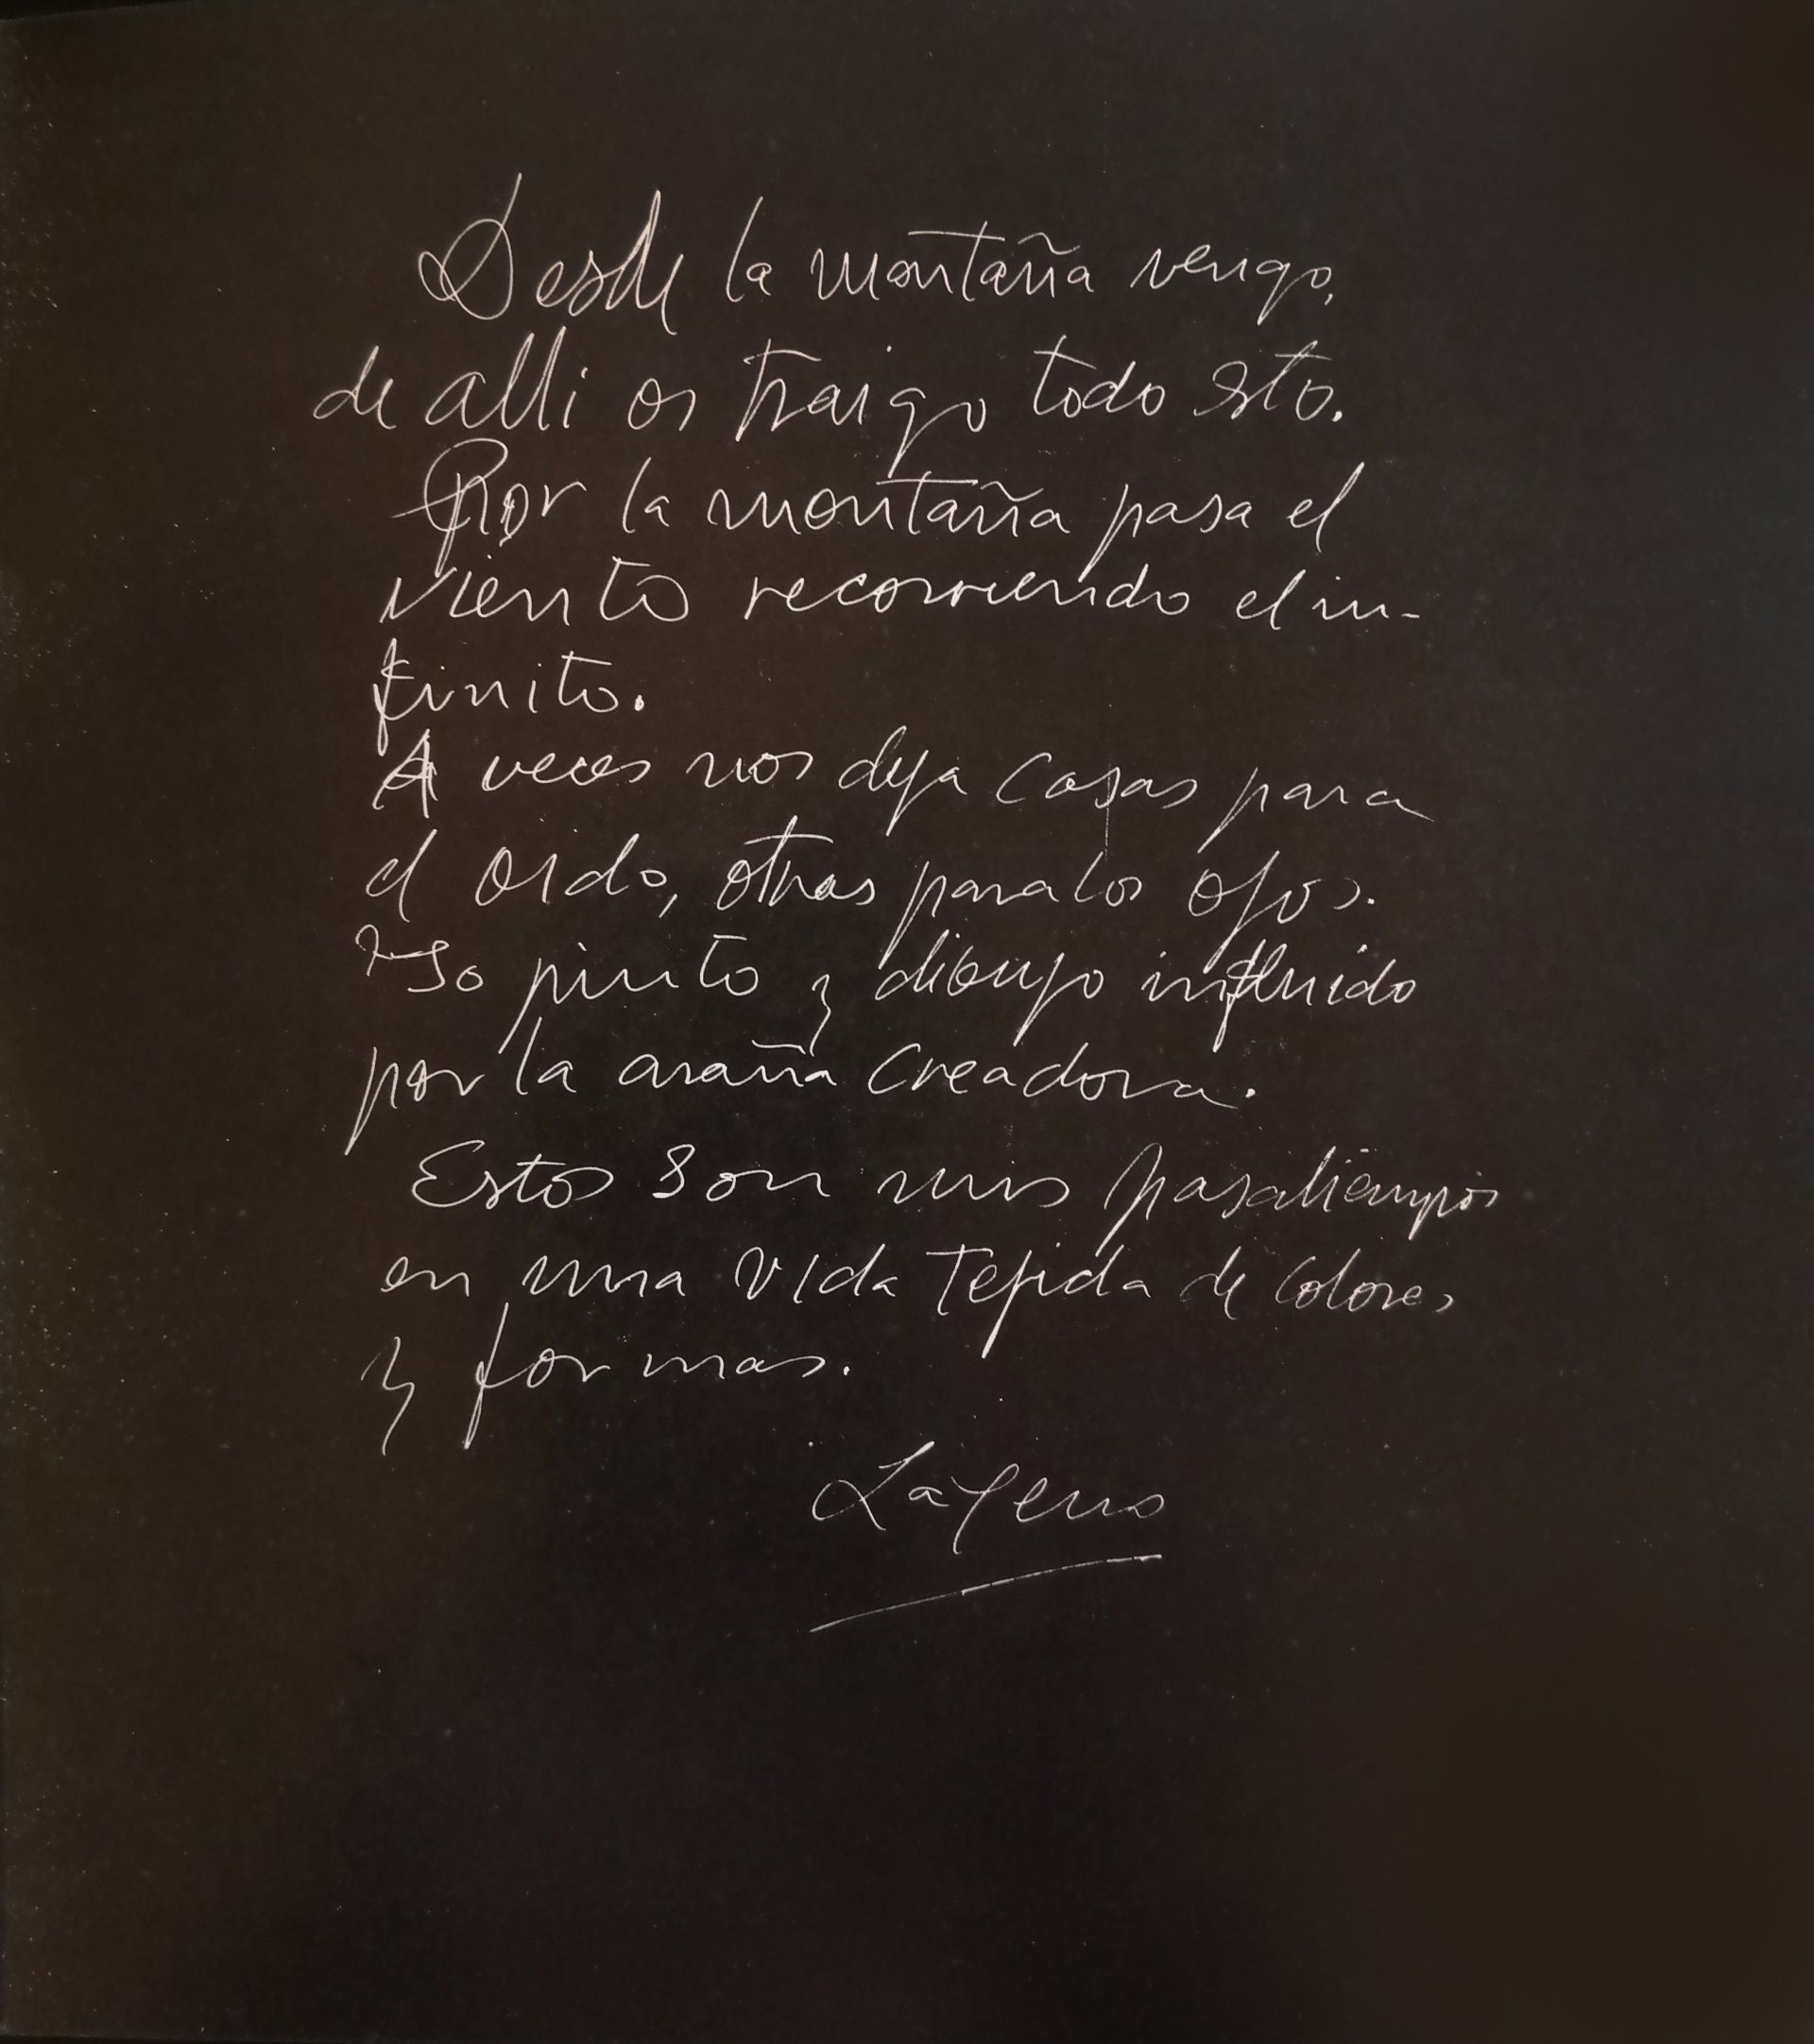 Desde la montaña vengo,
de alli os traigo todo esto.
Por la montaña pasa el
viento recorriendo el in-
finito.
A veces nos deja cosas para
el oido, otras para los ojos.
Yo pinto y dibujo influido
por la araña creadora.
Estos son mis pasatiempos
en una vida tejida de colores
y formas.